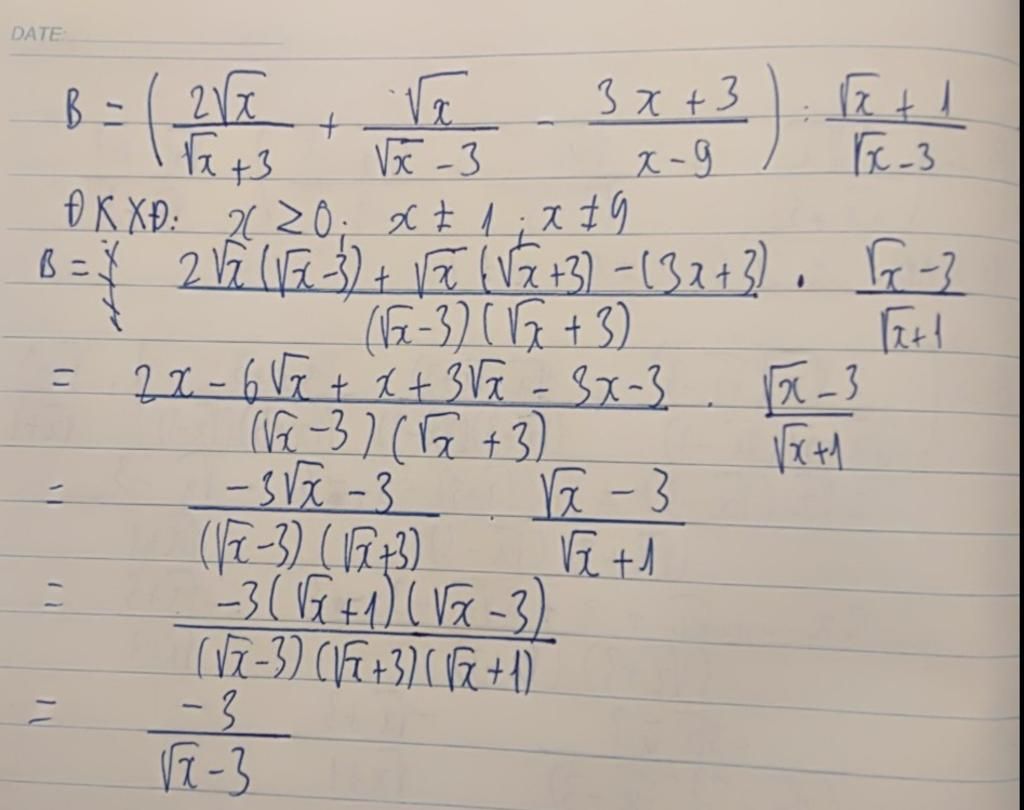 DATE:
B = ( 2√x / (√x + 3) + √x / (√x - 3) - (3x + 3) / (x - 9) ) : (√x + 1) / (√x - 3)
ĐKXĐ: x ≥ 0; x ≠ 1; x ≠ 9
B = (2√x(√x-3) + √x(√x+3) - (3x+3)) / ((√x-3)(√x+3)) . (√x-3) / (√x+1)
= (2x - 6√x + x + 3√x - 3x - 3) / ((√x-3)(√x+3)) . (√x-3) / (√x+1)
= (-3√x - 3) / ((√x-3)(√x+3)) . (√x - 3) / (√x + 1)
= (-3(√x+1)(√x-3)) / ((√x-3)(√x+3)(√x+1))
= -3 / (√x-3)